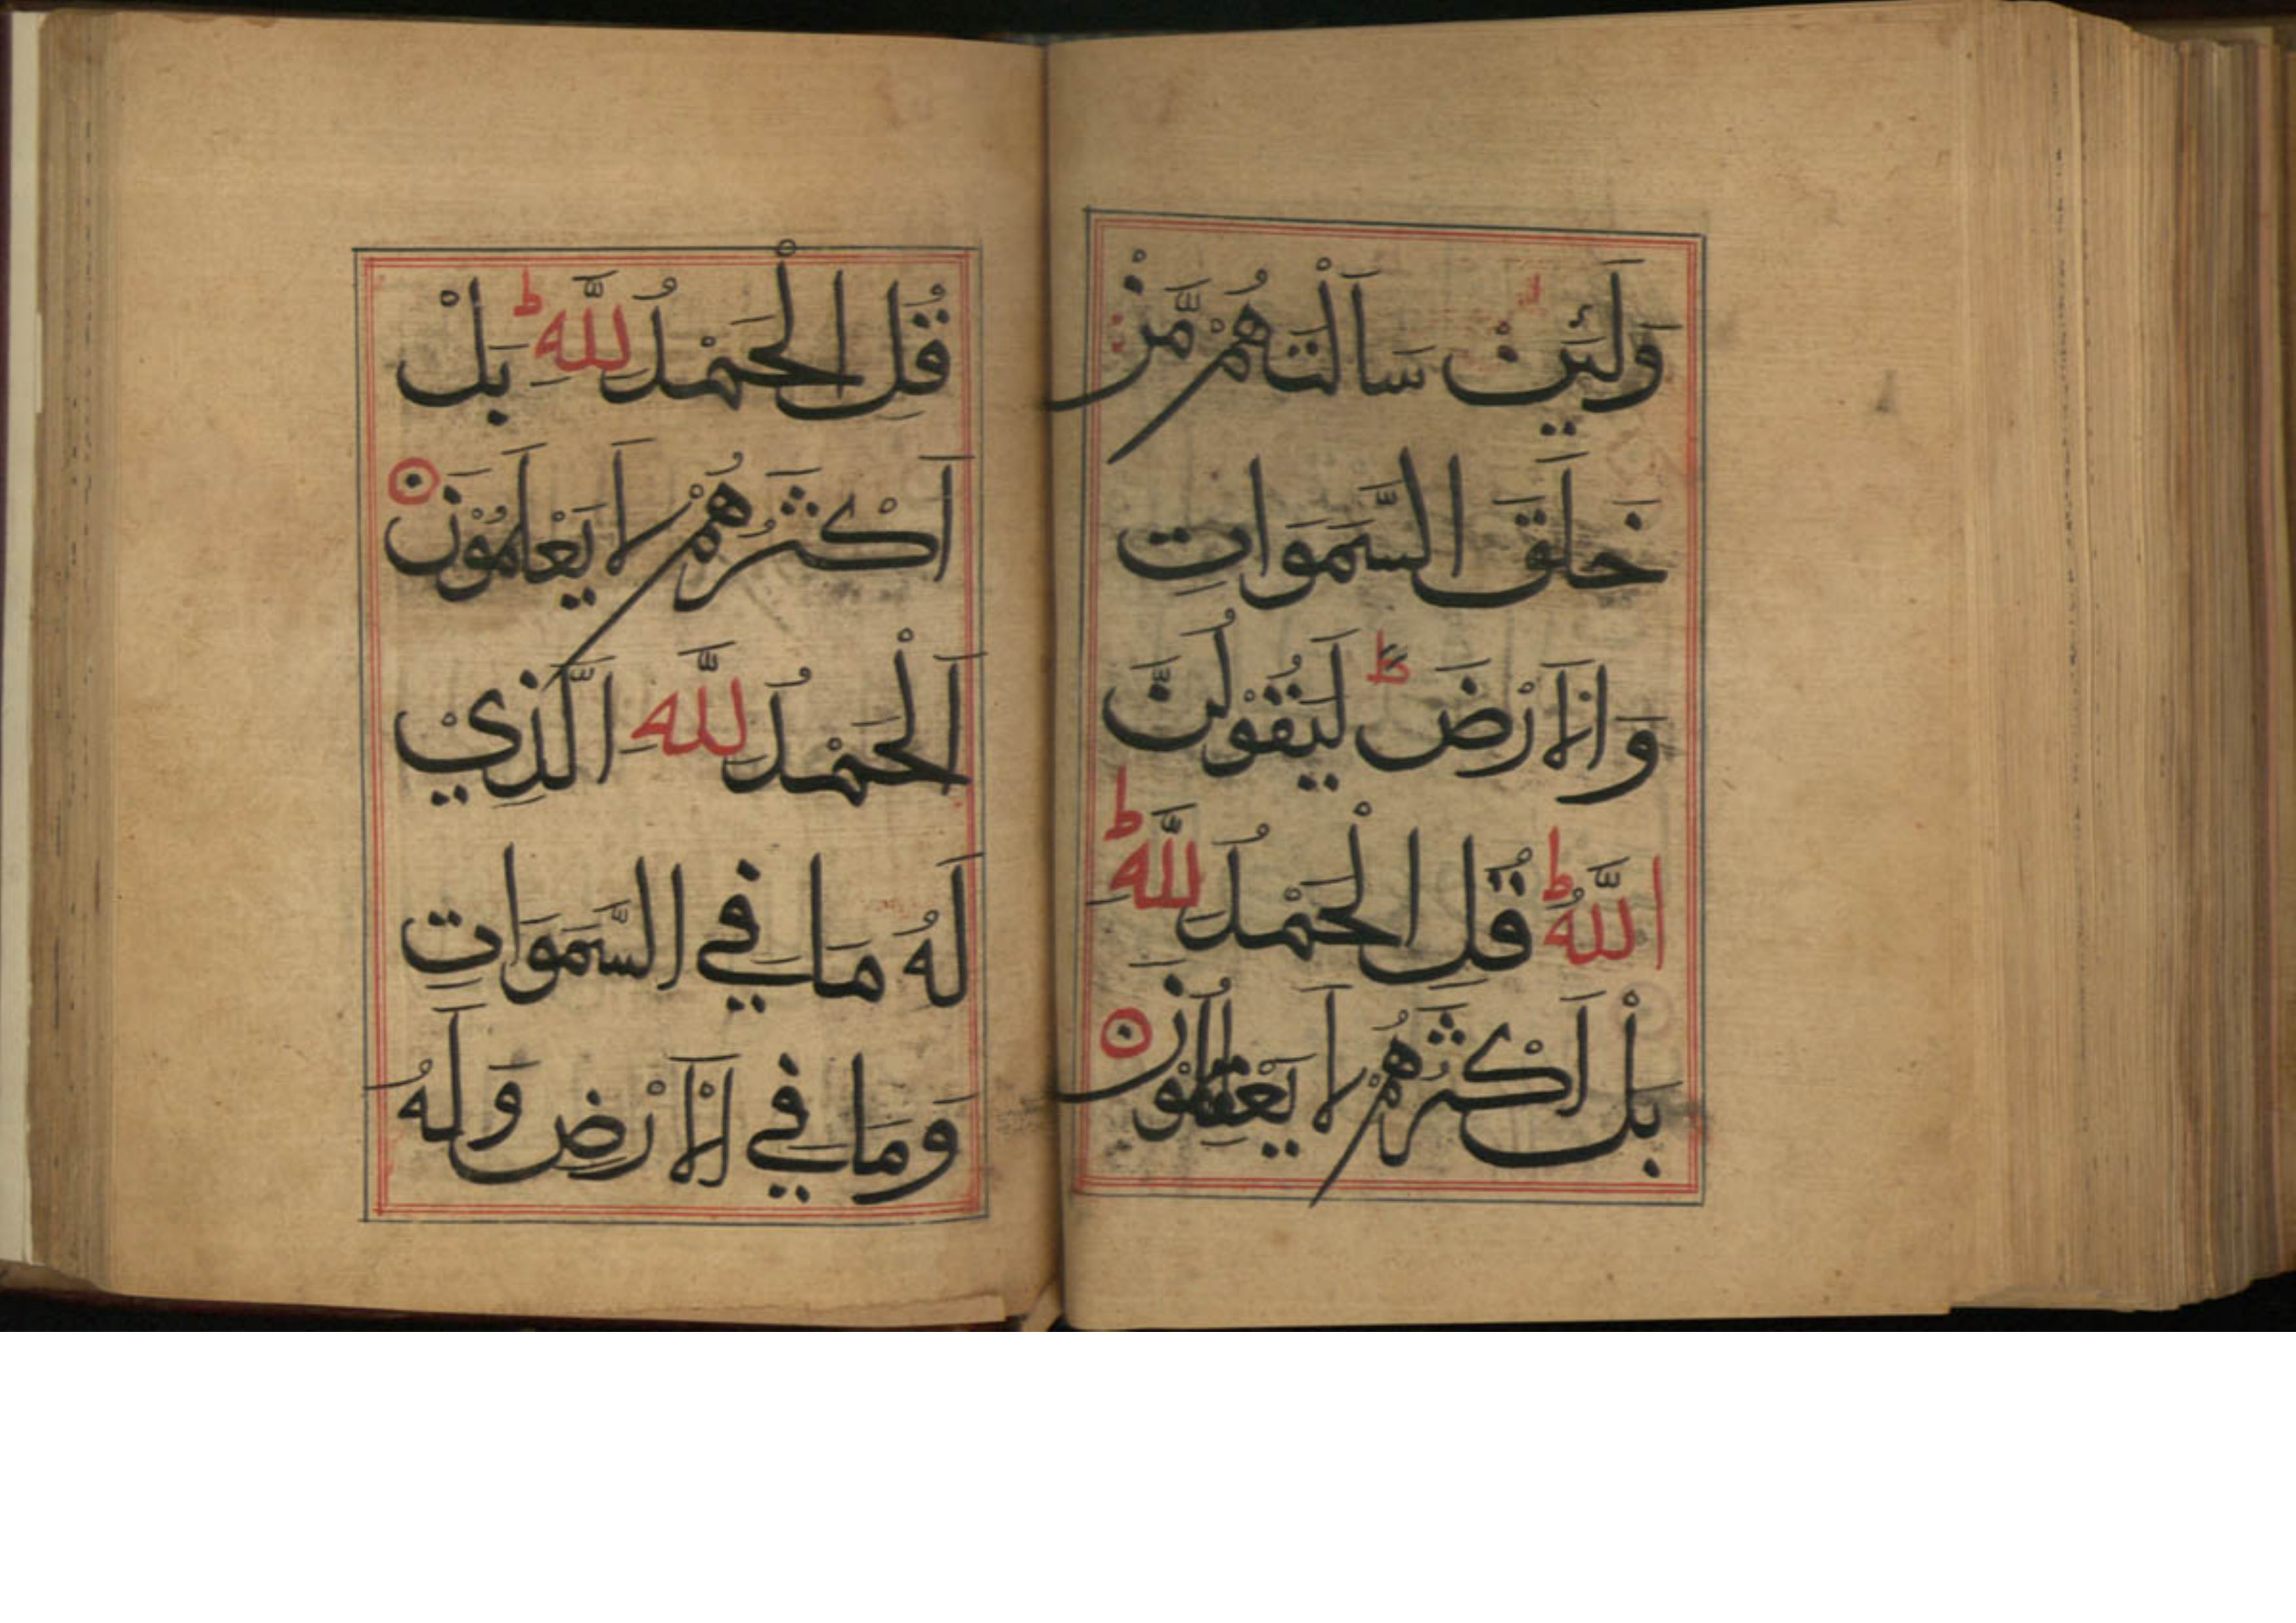 وَلَئِنْ سَاَلْتَهُمْ مَّنْ
خَلَقَ السَّمَوَاتِ
وَالْاَرْضَ ط لَيَقُوْلُنَّ
اللَّهُ ط قُلِ الْحَمْدُ لِلَّهِ ط
بَلْ اَكْثَرُهُمْ لَا
قُلِ الْحَمْدُ لِلَّهِ ط بَلْ
اَكْثَرُهُمْ لَا يَعْلَمُوْنَ
اَلْحَمْدُ لِلَّهِ الَّذِيْ
لَهُ مَا فِي السَّمَوَاتِ
وَمَا فِي الْاَرْضِ وَلَهُ